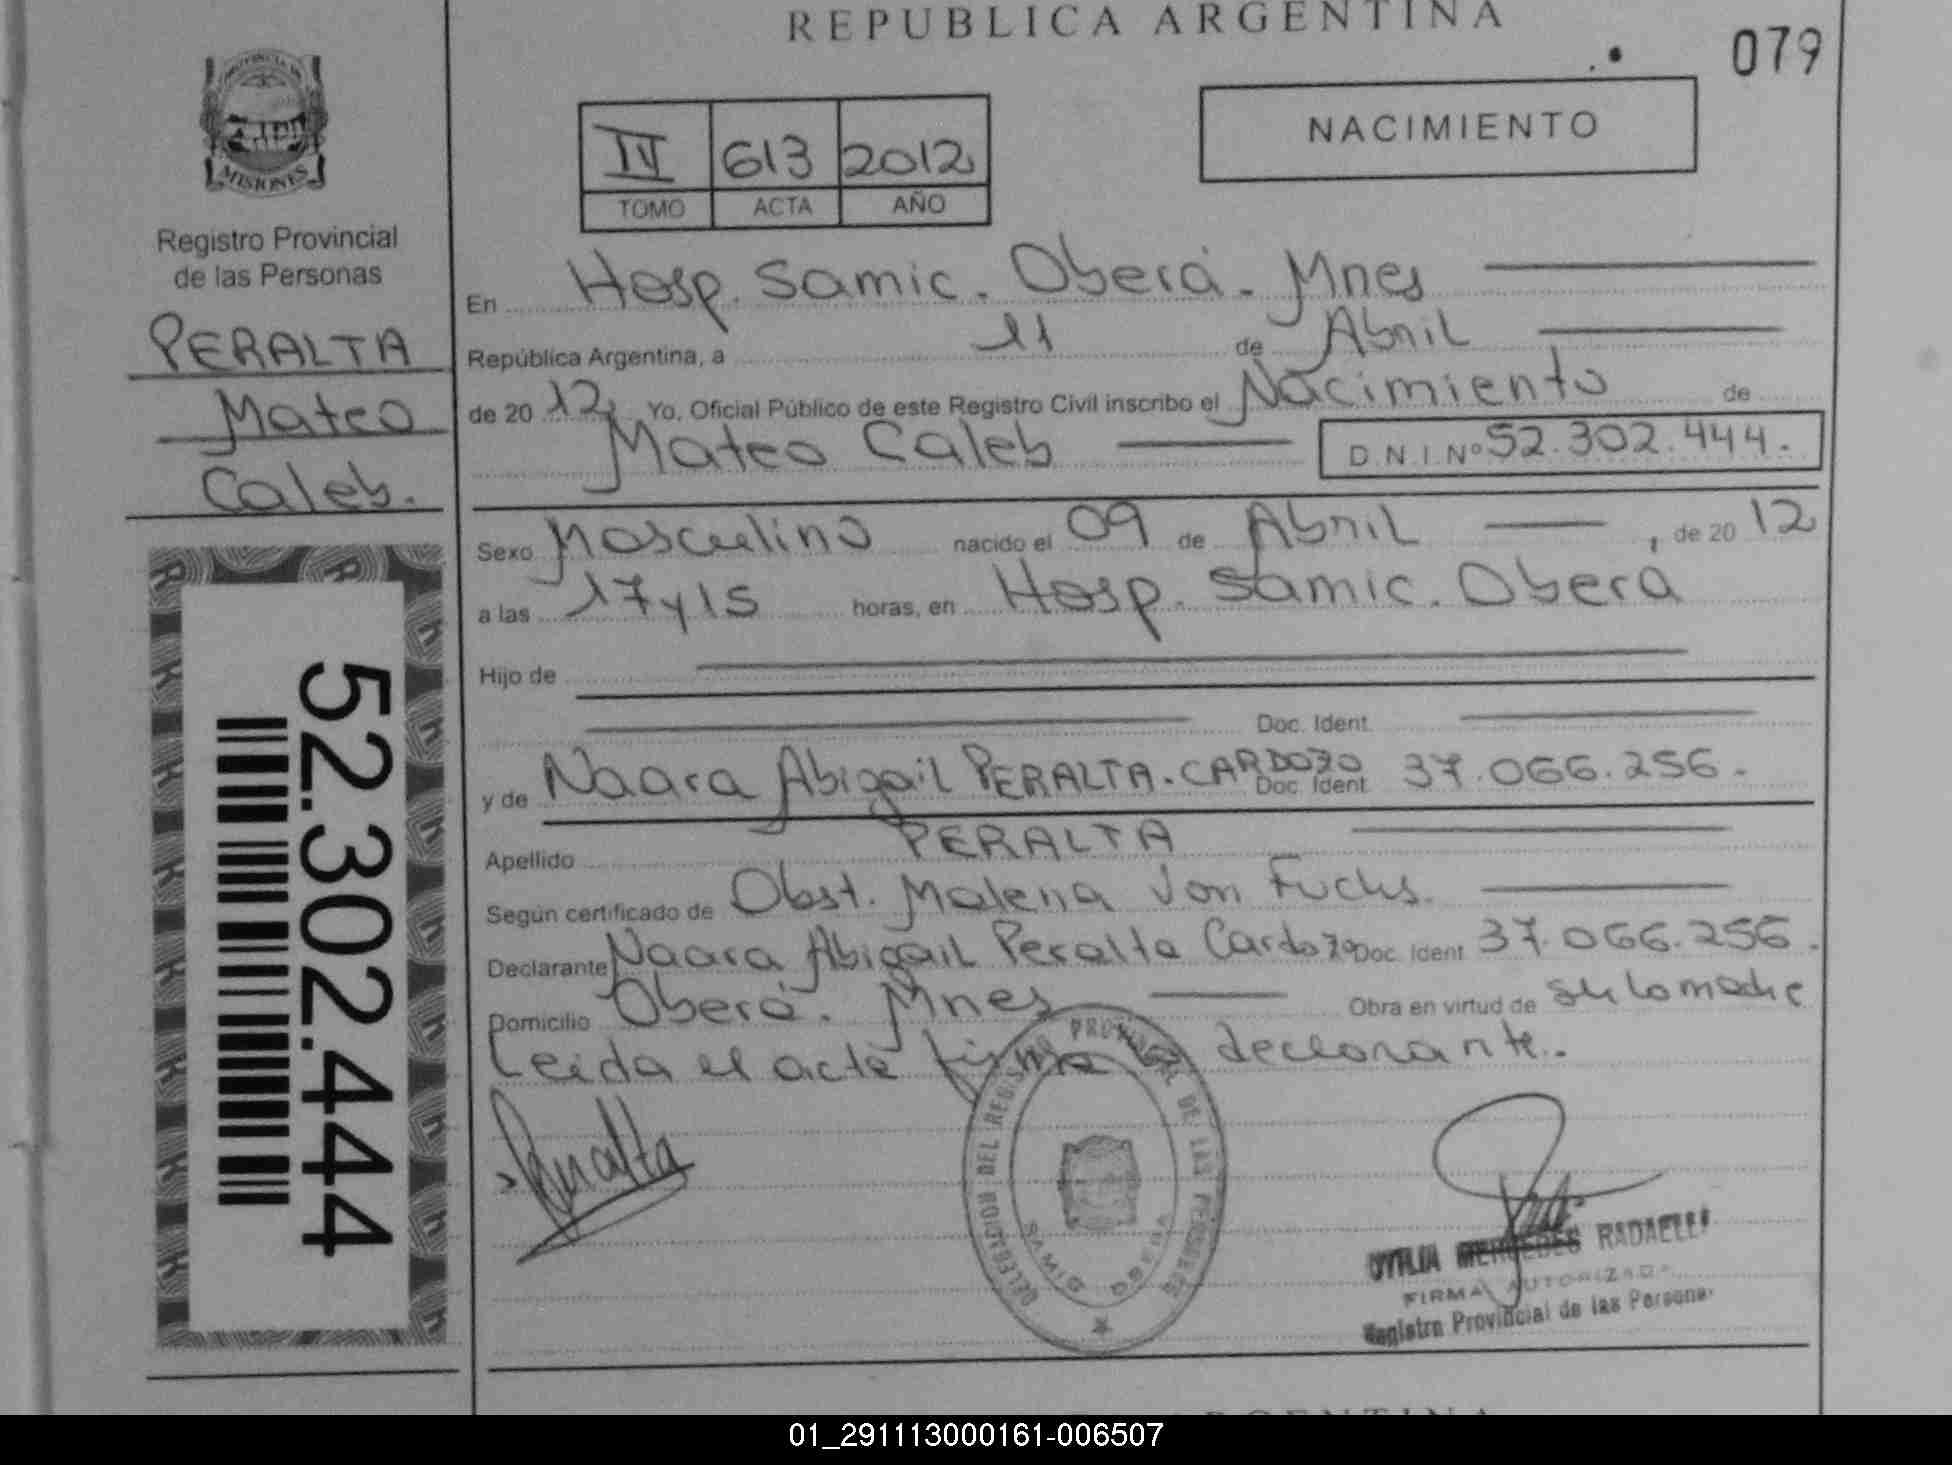 REPUBLICA ARGENTINA
079
PROVINCIA DE
MISIONES
Registro Provincial
de las Personas
PERALTA
Mateo
Caleb.
52.302.444
IV 613 2012
TOMO ACTA AÑO
NACIMIENTO
En Hosp. Samic. Oberá. Mnes
República Argentina, a 11 de Abril
de 2012, Yo, Oficial Público de este Registro Civil inscribo el Nacimiento de
Mateo Caleb D.N.I.Nº 52.302.444.
Sexo Masculino nacido el 09 de Abril, de 2012
a las 17 y 15 horas, en Hosp. Samic. Oberá
Hijo de
Doc. Ident.
y de Naara Abigail PERALTA. CARDOZO Doc. Ident. 37.066.256.
Apellido PERALTA
Según certificado de Obst. Malena Von Fuchs.
Declarante Naara Abigail Peralta Cardozo Doc. Ident. 37.066.256.
Domicilio Oberá. Mnes Obra en virtud de ser la madre
Leida el acta firma la declarante.
Peralta
DELEGACION DEL REGISTRO PROVINCIAL DE LAS PERSONAS
SAMIC OBERA
MERCEDES RADAELLI
FIRMA AUTORIZADA
Registro Provincial de las Personas
ARGENTINA
01_291113000161-006507